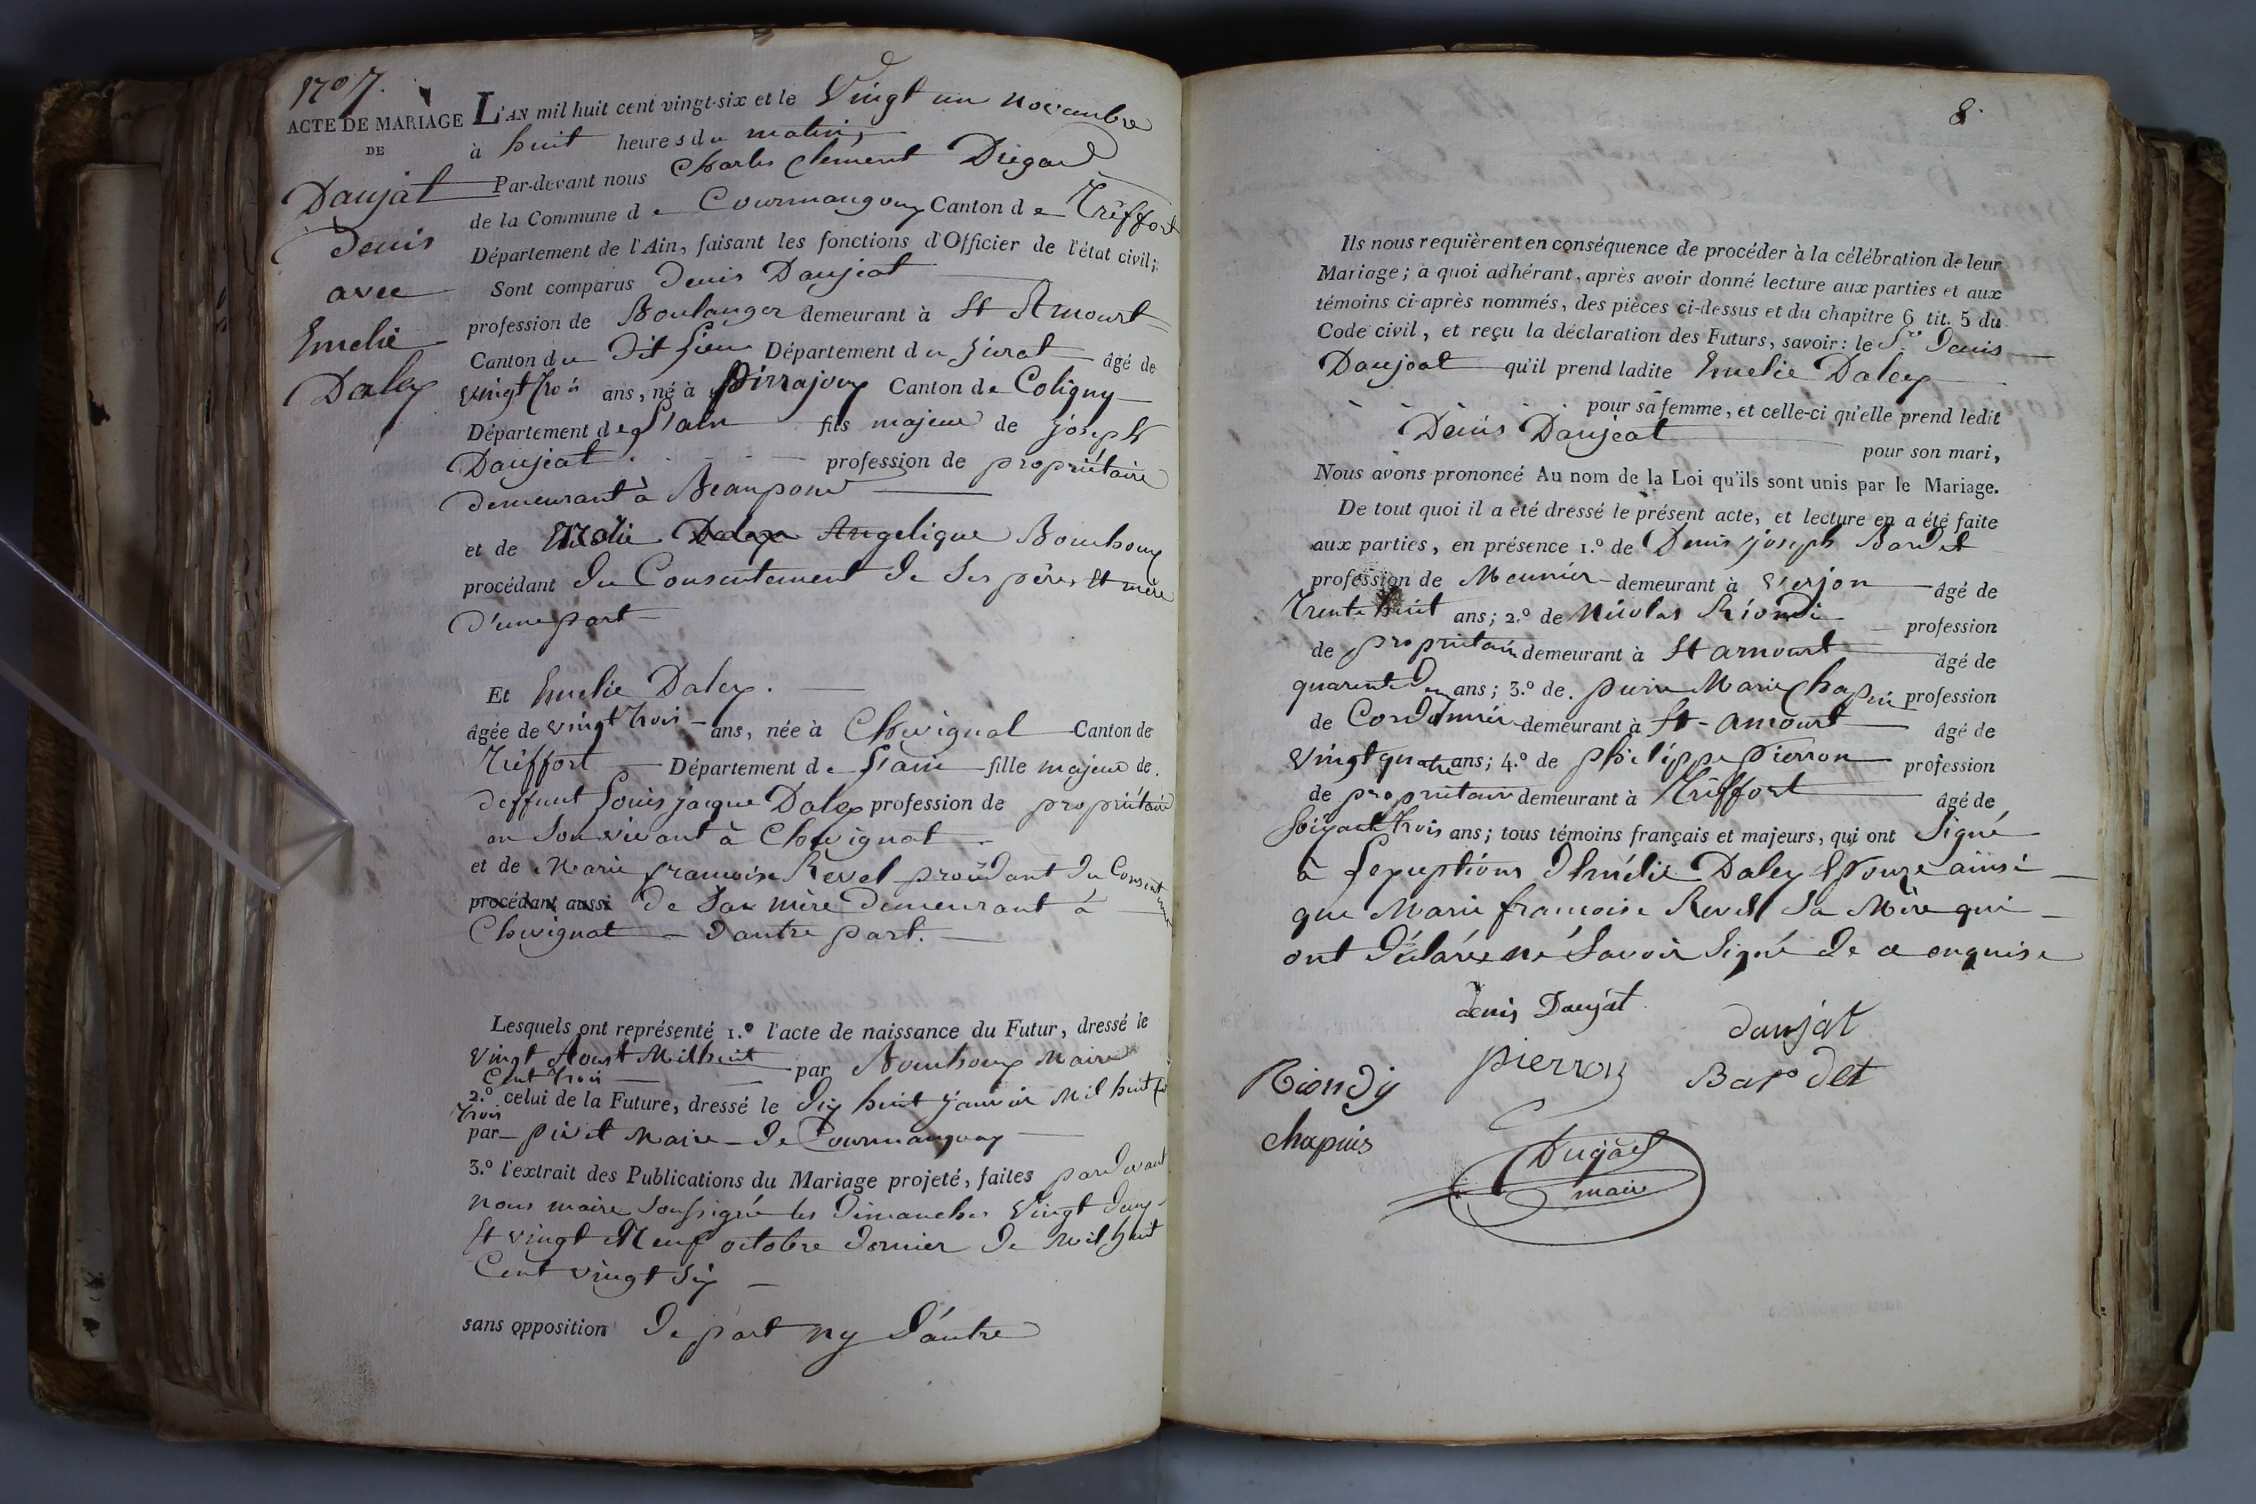 1707.
ACTE DE MARIAGE
DE
Daujat
Denis
avec
Emelie
Daley
L'AN mil huit cent vingt-six et le Vingt un novembre
à huit heures du matin,
Par-devant nous Charles Clément
de la Commune de Courmangoux Canton de Treffort
Département de l'Ain, faisant les fonctions d'Officier de l'état civil;
Sont comparus Denis Daujeat
profession de Boulanger demeurant à St Amourt
Canton du Dit Lieu Département du Jurat âgé de
vingt trois ans, né à Pirrajoux Canton de Coligny
Département de L'ain fils majeur de joseph
Daujeat profession de propriétaire
demeurant à Beaupont
et de Angelique Bouhoux
procédant du Consentement de Ses père Et mère
D'une part
Et Emelie Daley.
âgée de vingt trois ans, née à Chevignat Canton de
Treffort Département de L'ain fille majeure de
deffunt Louis jacque Daley profession de propriétaire
en Son vivant à Chevignat
et de Marie francoise Revel procédant du Consentement
procédant aussi de Sa mère Demeurant à
Chevignat D'autre part.
Lesquels ont représenté 1.º l'acte de naissance du Futur, dressé le
Vingt Aoust Mil huit
Cent trois par Bouhoux Maire
2.º celui de la Future, dressé le Dix huit janvier Mil huit Cent
trois
par Pivet Maire De Courmangoux
3.º l'extrait des Publications du Mariage projeté, faites pardevant
nous maire Soussigné les Dimanches Vingt Deux
Et vingt Neuf octobre Dernier De Mil huit
Cent vingt Six
sans opposition De part ny D'autre
8.
Ils nous requièrent en conséquence de procéder à la célébration de leur
Mariage; à quoi adhérant, après avoir donné lecture aux parties et aux
témoins ci-après nommés, des pièces ci-dessus et du chapitre 6 tit. 5 du
Code civil, et reçu la déclaration des Futurs, savoir: le Sr. Denis
Daujoat qu'il prend ladite Emelie Daley
pour sa femme, et celle-ci qu'elle prend ledit
Denis Daujeat
pour son mari,
Nous avons prononcé Au nom de la Loi qu'ils sont unis par le Mariage.
De tout quoi il a été dressé le présent acte, et lecture en a été faite
aux parties, en présence 1.º de Denis joseph Bardet
profession de Meunier demeurant à Verjon âgé de
Trente huit ans; 2.º de Nicolas Riondi profession
de propriétaire demeurant à St amourt âgé de
quarente Deux ans; 3.º de pierre Marie Chapui profession
de Cordonnier demeurant à St-amourt âgé de
vingt quatre ans; 4.º de philippe pierron profession
de propriétaire demeurant à Treffort âgé de
Soixante trois ans; tous témoins français et majeurs, qui ont Signé
à Lexceptions D'Emélie Daley Epouse ainsi
que Marie francoise Revel Sa Mère qui
ont Déclarée ne Savoir Signé De ce enquise
denis Daujat
daujat
Riondy
pierron
Bardet
chapuis
Dugad
maire